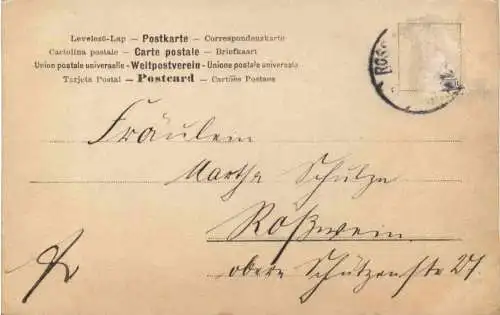 Levelező-Lap — Postkarte — Correspondenzkarte
Cartolina postale — Carte postale — Briefkaart
Union postale universelle — Weltpostverein — Unione postale universale
Tarjeta Postal — Postcard — Cartões Postaes
ROSS
Fräulein
Martha Schulze
Roßwein
obere Schützenstr 27.